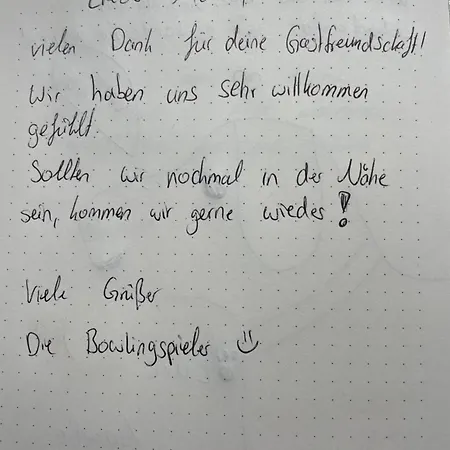 vielen Dank für deine Gastfreundschaft!
Wir haben uns sehr willkommen
gefühlt.
Sollten wir nochmal in der Nähe
sein, kommen wir gerne wieder!
Viele Grüße
Die Bowlingspieler